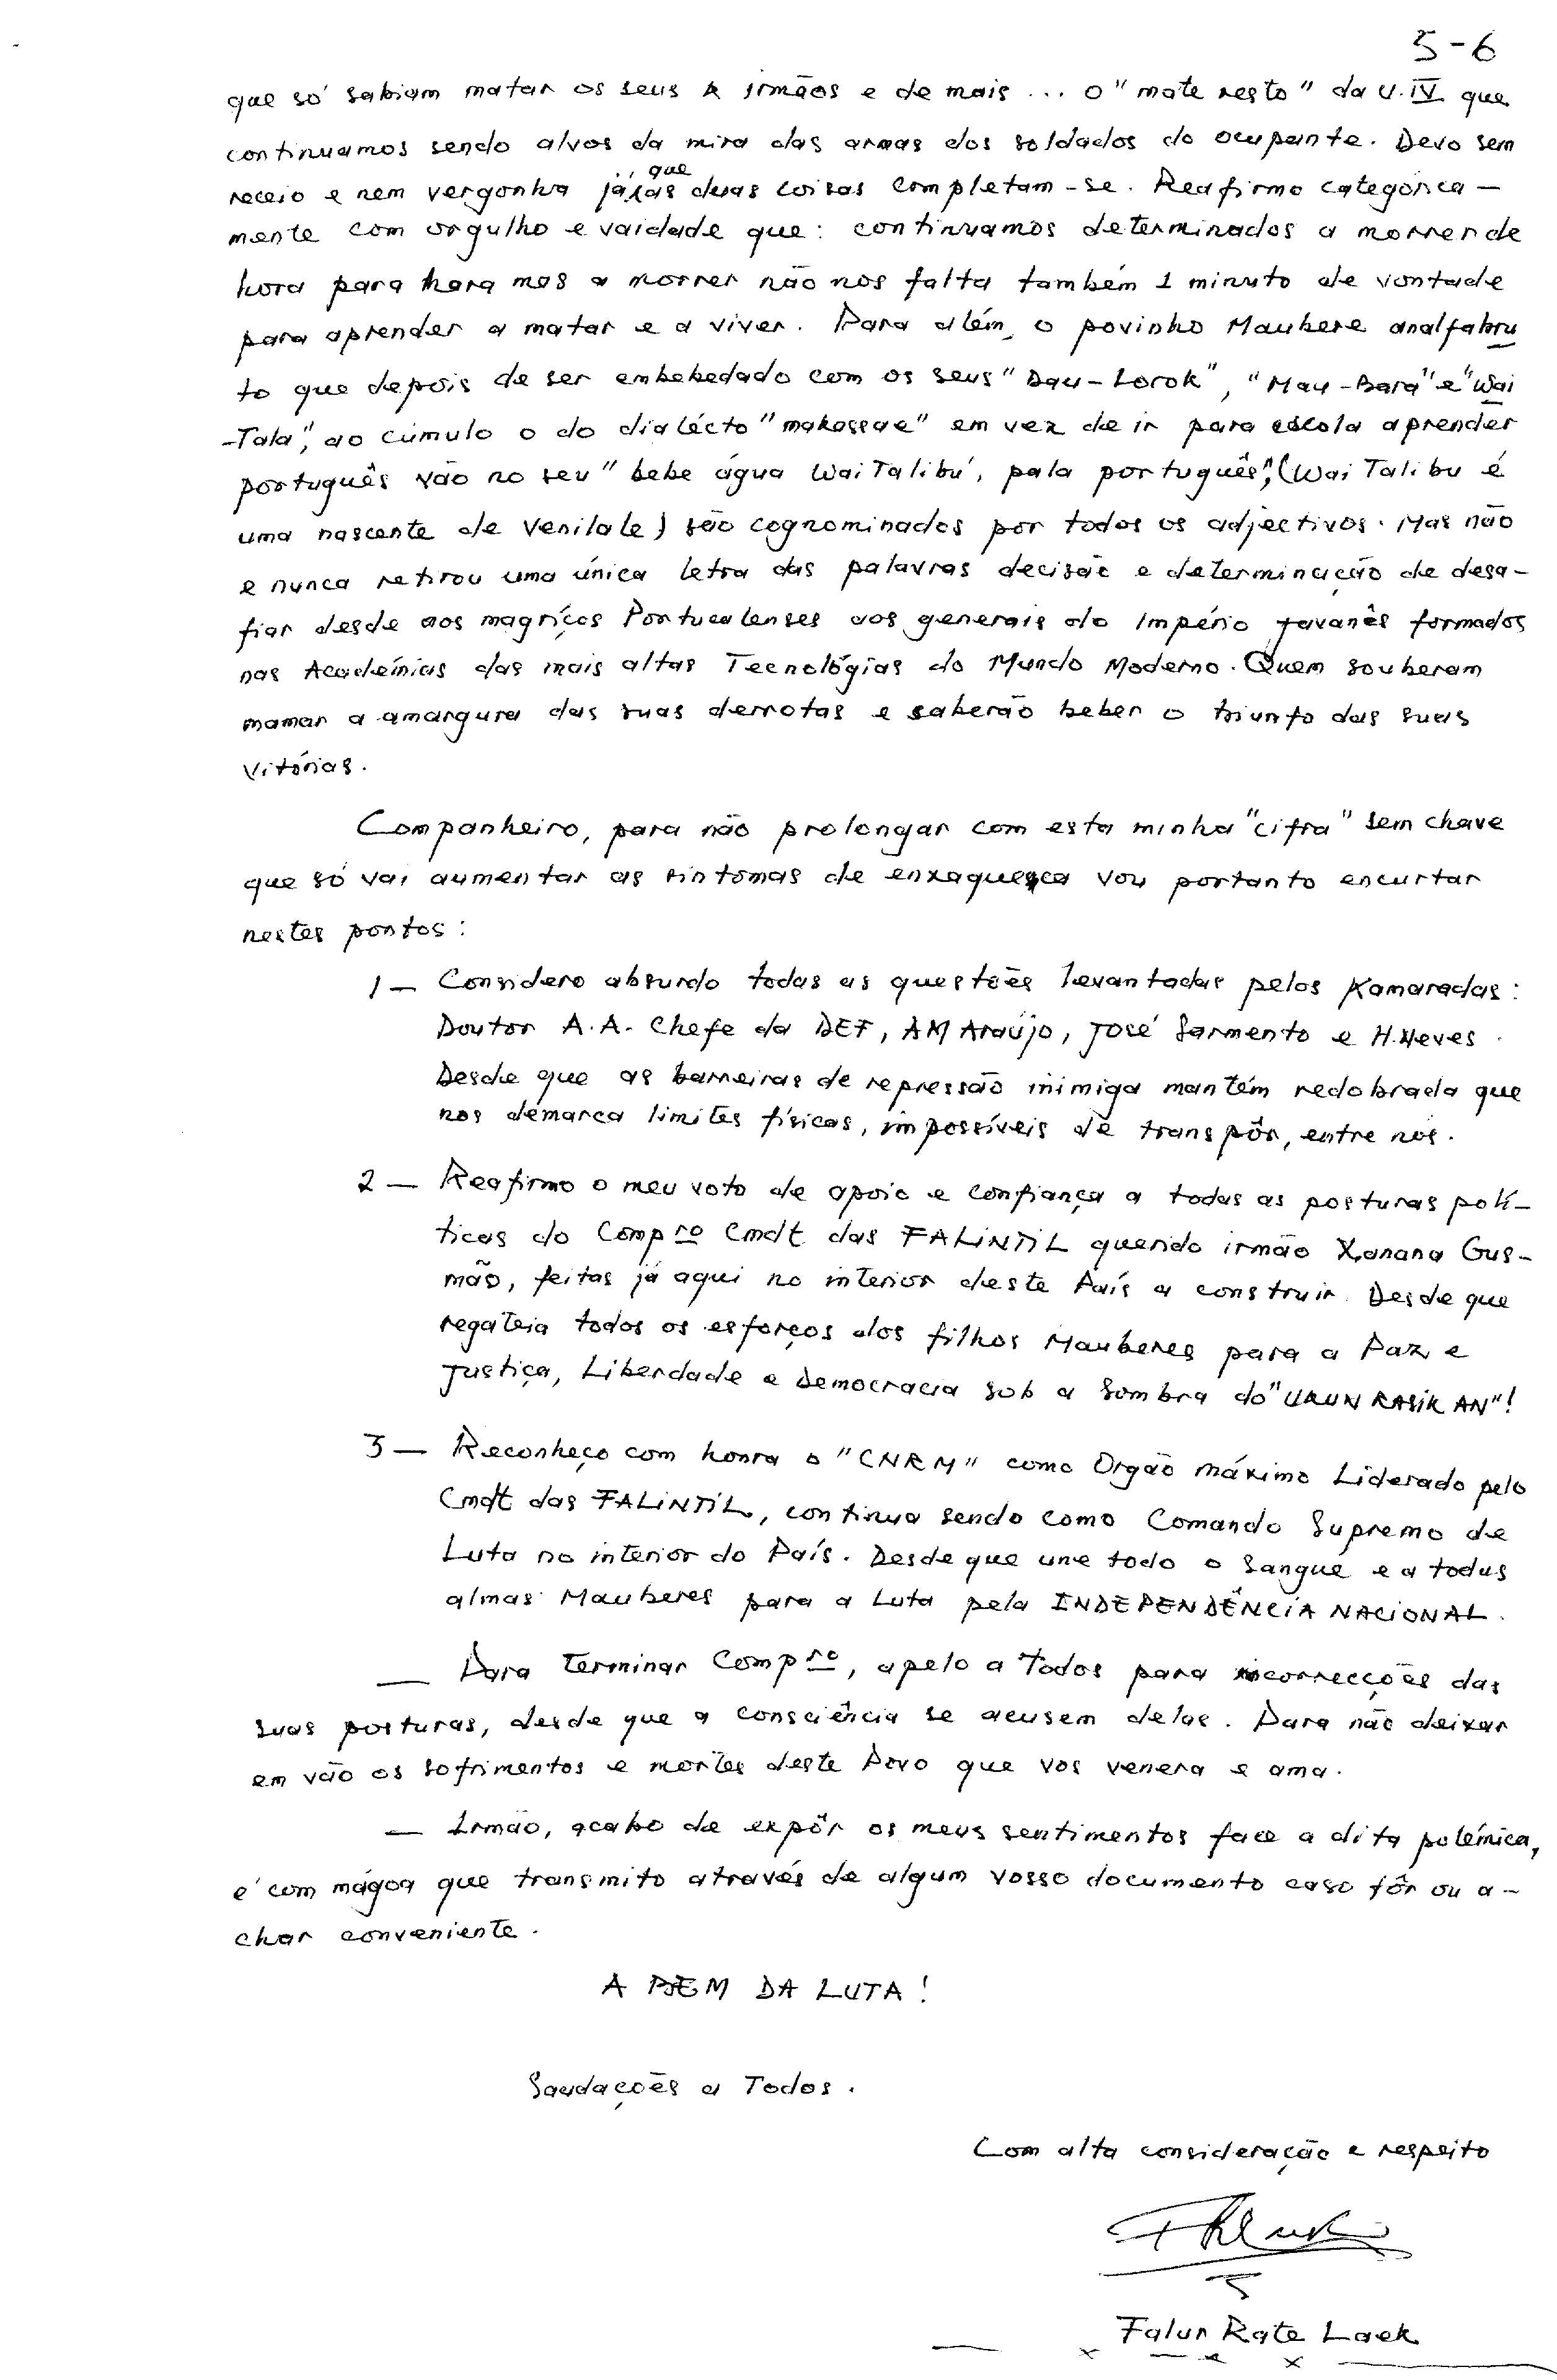 5-6
que só sabiam matar os seus irmãos e de mais ... o "mate resto" da U.IV que
continuamos sendo alvos da mira das armas dos soldados do ocupante. Devo sem
receio e nem vergonha já que as duas coisas completam-se. Reafirmo categórica-
mente com orgulho e vaidade que: continuamos determinados a morrer de
hora para hora mas a morrer não nos falta também 1 minuto de vontade
para aprender a matar e a viver. Para além, o povinho Maubere analfabru
to que depois de ser embebedado com os seus "Dau-Lorok", "Mau-Bara" e "Wai
-Tala", ao cúmulo o do dialécto "makassae" em vez de ir para escola aprender
português vão no seu "bebe água Wai Talibu, pala português", (Wai Talibu é
uma nascente de Venilale) são cognominados por todos os adjectivos. Mas não
e nunca retirou uma única letra das palavras decisão e determinação de desa-
fiar desde aos magriços Portucalenses aos generais do Império Javanês formados
nas Academias das mais altas Tecnológias do Mundo Moderno. Quem souberam
mamar a amargura das suas derrotas e saberão beber o triunfo das suas
vitórias.
Companheiro, para não prolongar com esta minha "cifra" sem chave
que só vai aumentar as sintomas de enxaqueca vou portanto encurtar
nestes pontos:
1 - Considero absurdo todas as questões levantadas pelos Kamaradas:
Doutor A.A. Chefe da DEF, AM Araújo, José Sarmento e H. Neves.
Desde que as barreiras de repressão inimiga mantém redobrada que
nos démarca limites físicos, impossíveis de transpôr, entre nós.
2 - Reafirmo o meu voto de apoio e confiança a todas as posturas polí-
ticas do Compro Cmdt das FALINTIL querido irmão Xanana Gus-
mão, feitas já aqui no interior deste País a construir. Desde que
regateia todos os esforços dos filhos Mauberes para a Paz e
Justiça, Liberdade e Democracia sob a Sombra do "UKUN RASIK AN"!
3 - Reconheço com honra o "CNRM" como Orgão máximo Liderado pelo
Cmdt das FALINTIL, continua sendo como Comando Supremo de
Luta no interior do País. Desde que une todo o Sangue e a todas
almas Mauberes para a Luta pela INDEPENDÊNCIA NACIONAL.
- Para terminar Compro, apelo a Todos para correcções das
suas posturas, desde que a consciência se acusem delas. Para não deixar
em vão os sofrimentos e mortes deste Povo que vos venera e ama.
- Irmão, acabo de expôr os meus sentimentos face a dita polémica,
é com mágoa que transmito através de algum vosso documento caso fôr ou a-
char conveniente.
A BEM DA LUTA!
Saudações a Todos.
Com alta consideração e respeito
Falur Rate Laek